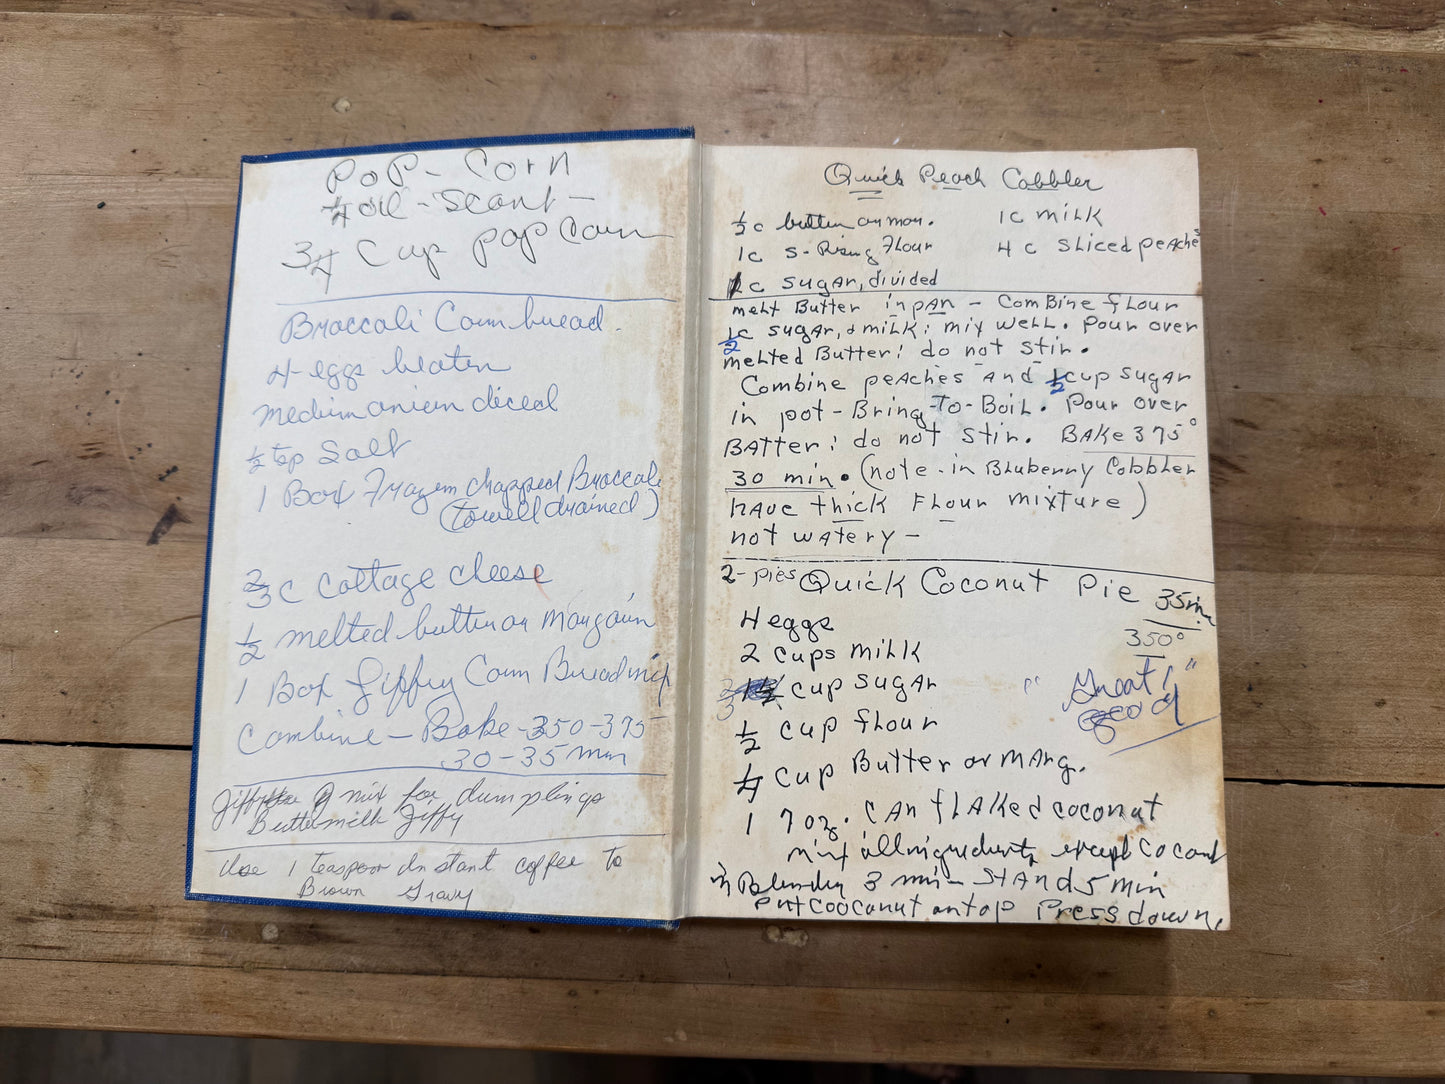 POP- Corn
1/4 oil - scant -
3/4 Cup pop Corn
Broccoli Cornbread.
4- eggs beaten
medium onion diced
1/2 tsp Salt
1 Box Frozen chopped Broccoli
(towell drained)
2/3 c cottage cheese
1/2 melted butter or margain
1 Box Jiffy Corn Bread mix
Combine - Bake - 350-375
30-35 min
mix for dumplings
Buttermilk Jiffy
Use 1 teaspoon Instant coffee to
Brown Gravy
Quick Peach Cobbler
c butter or mar.
1c milk
1c S-Rising Flour
4 c sliced peaches
c sugar, divided
melt Butter in pan - Combine flour
1/2 c sugar, & milk; mix well. Pour over
melted Butter; do not stir.
Combine peaches and 1/2 cup sugar
in pot - Bring-To-Boil. Pour over
Batter; do not stir. Bake 375°
30 min. (note - in Bluberry Cobbler
have thick Flour mixture)
not watery -
2- pies Quick Coconut Pie 35 min
350°
4 eggs
2 cups milk
cup sugar
" Great! "
good
1/2 cup flour
1/4 cup Butter or marg.
1 7 oz. can flaked coconut
mix all ingredients except Coconut
in Blender 3 min - stand 5 min
Put Cooconut on top Press down